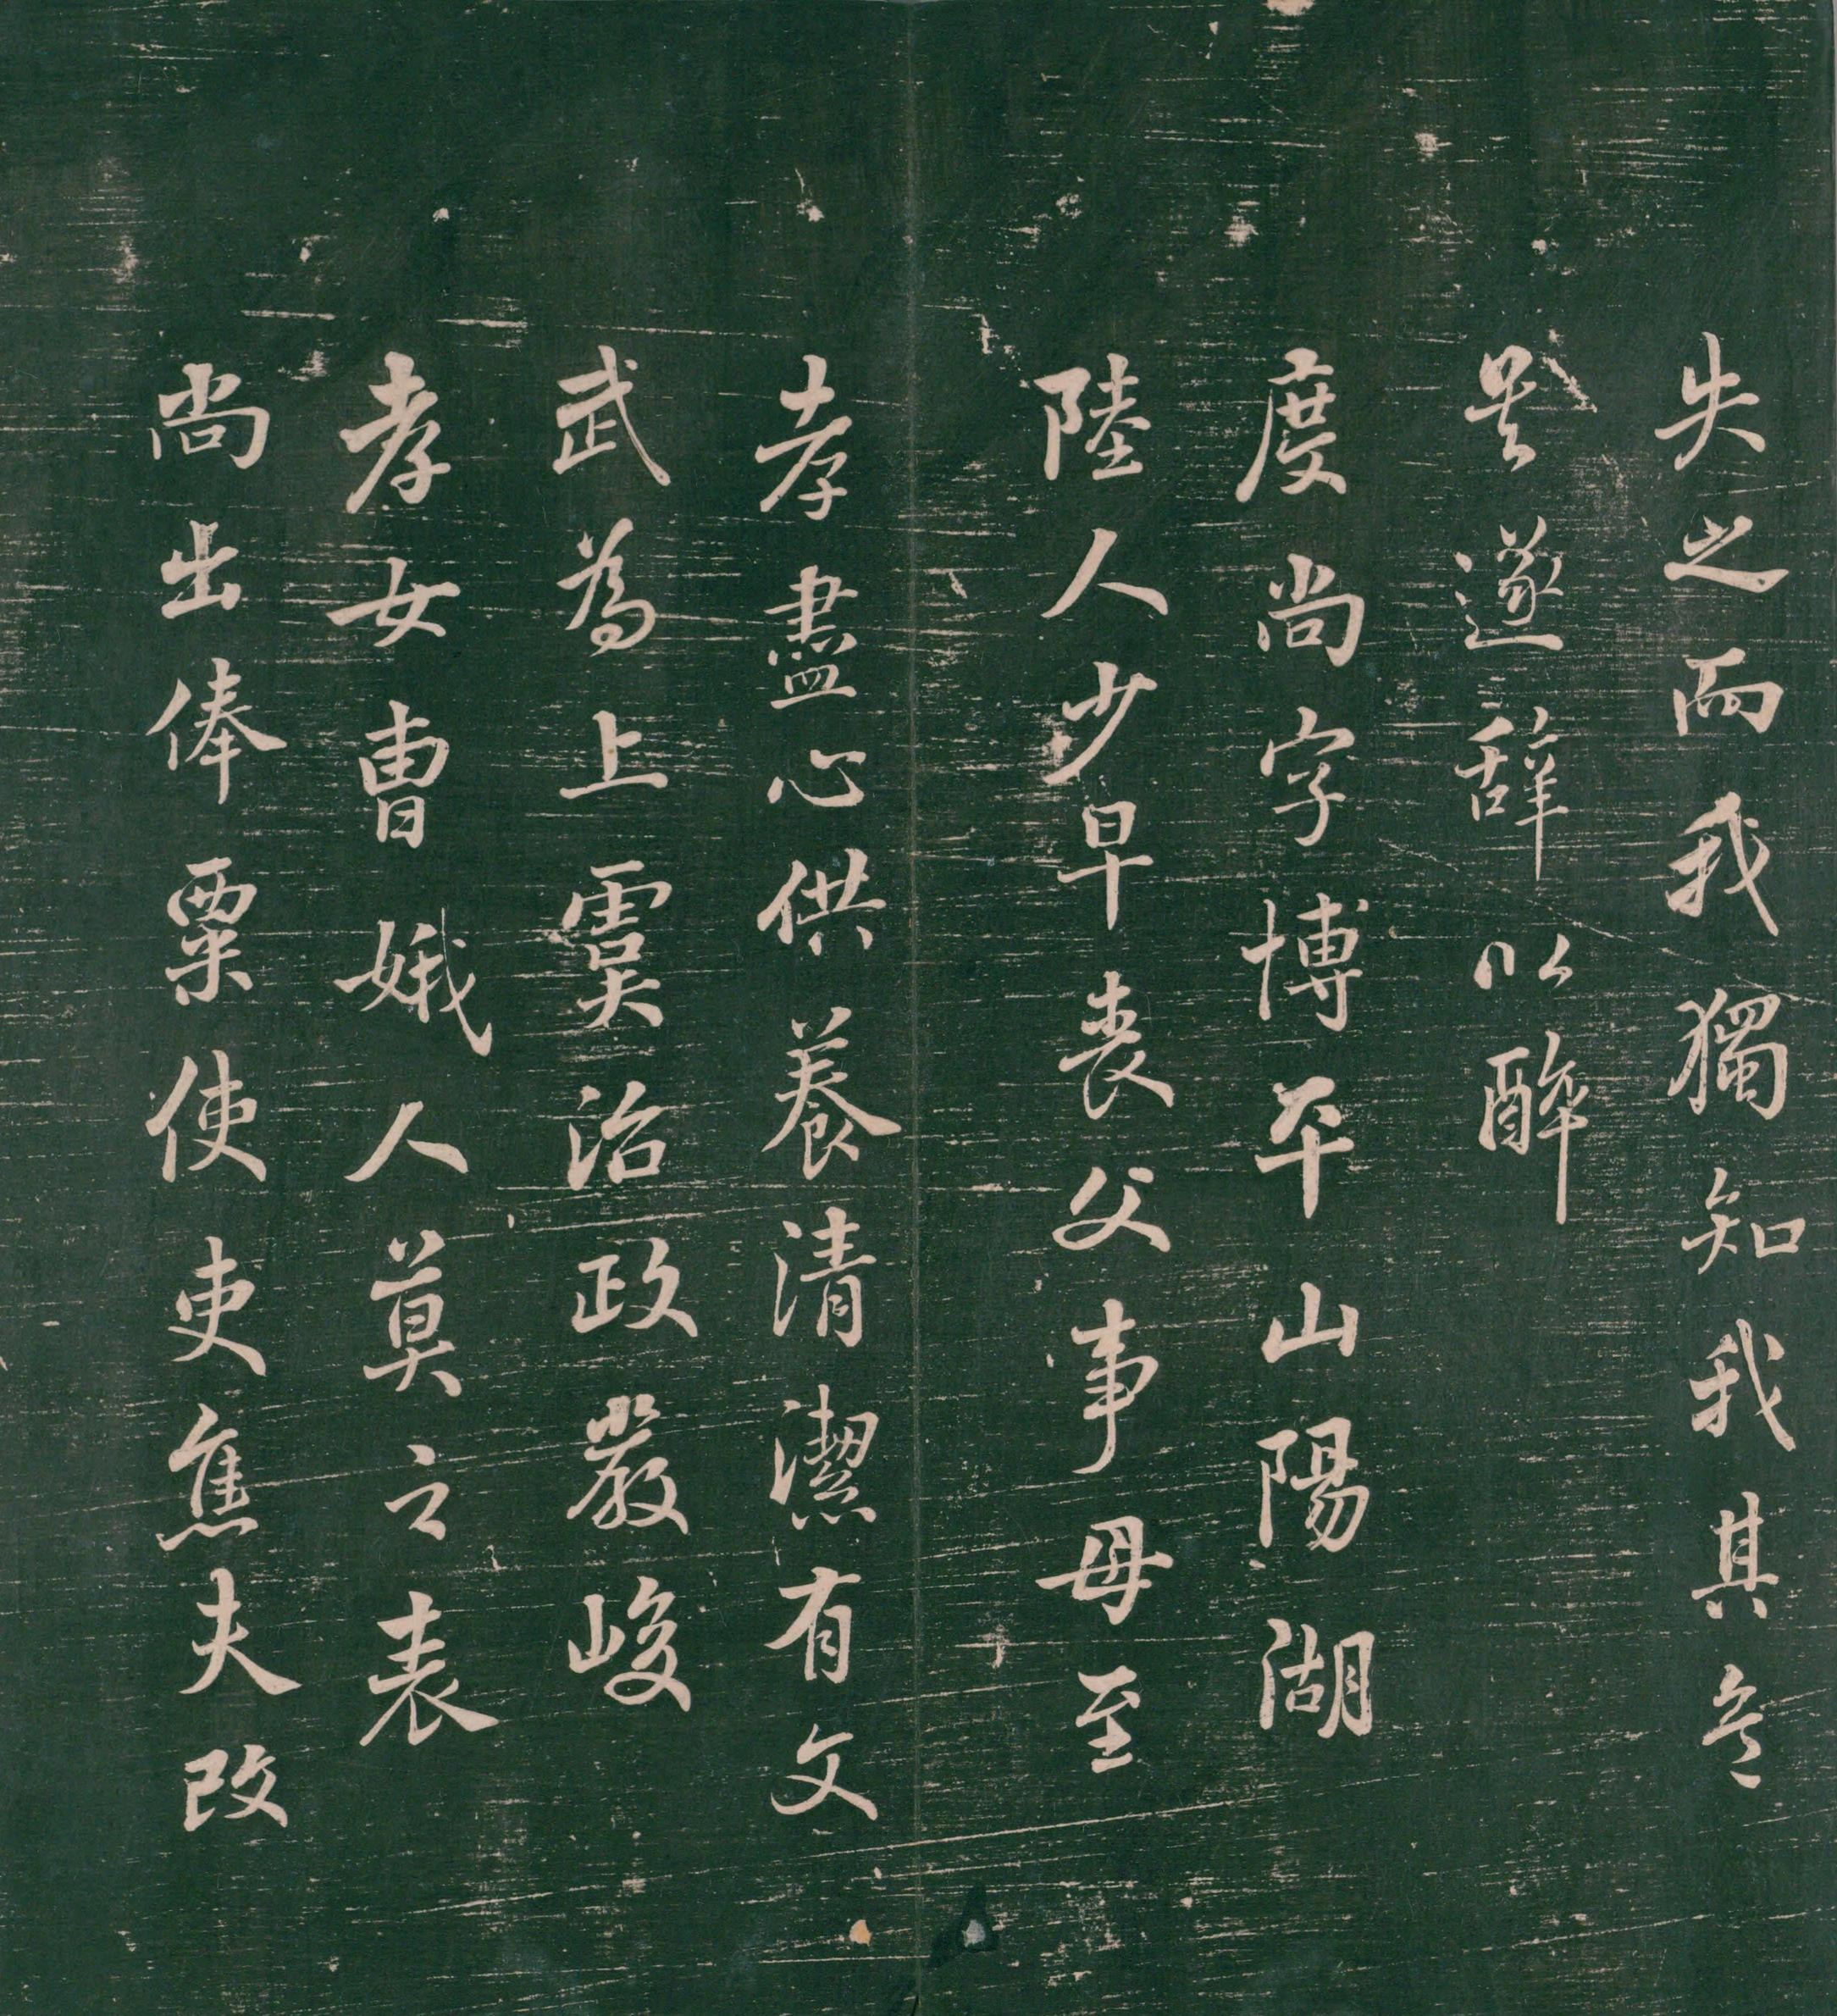 失之而我獨知我其無
是遂辞以醉
度尚字博平山陽湖
陸人少早喪父事母至
孝盡心供養清潔有文
武為上虞治政嚴峻
孝女曹娥人莫之表
尚出俸粟使吏焦夫改